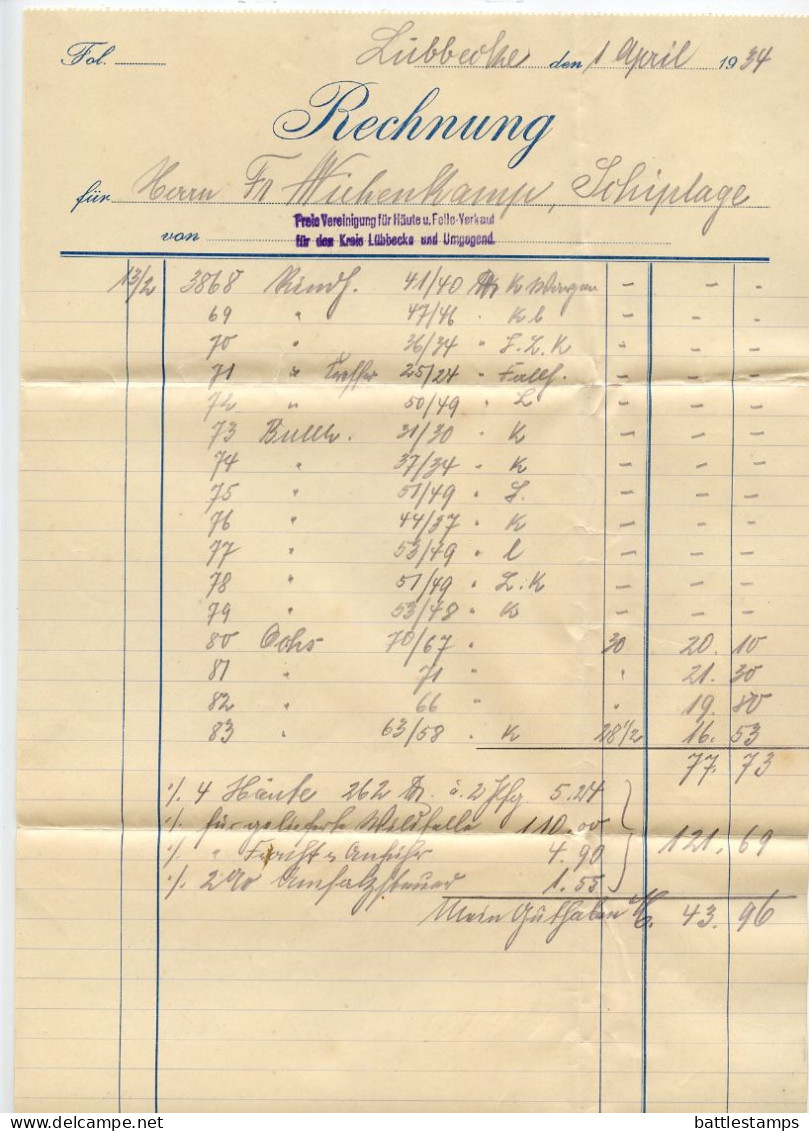 Fol. Lübbecke den 1 April 1934
Rechnung
für Herrn Fr Wiehenkamp, Schiplage
Freie Vereinigung für Häute u. Felle-Verkauf
von
für den Kreis Lübbecke und Umgegend.
13/2 3868 Rindh. 41/40 K - - -
69 " 47/46 " K l - - -
70 " 36/34 " L. K " - -
71 " 25/24 " Fallh. - - -
72 " 50/49 " L - - -
73 Bullh. 31/30 " K - - -
74 " 37/34 " K - - -
75 " 51/49 " - - -
76 " 44/37 " K - - -
77 " 53/49 " l - - -
78 " 51/49 " L. K - - -
79 " 53/48 " K - - -
80 Ochs 70/67 " 30 20. 10
81 " 71 " " 21. 30
82 " 66 " " 19. 80
83 " 63/58 " K 28 1/2 16. 53
77. 73
./. 4 Häute 262 à 2 Pfg 5.24
./. für gelieferte Wildfelle 110.00
121. 69
./. " Fracht u Anfuhr 4.90
./. 2% Umsatzsteuer 1.55
Mein Guthaben M. 43. 96
battlestamps